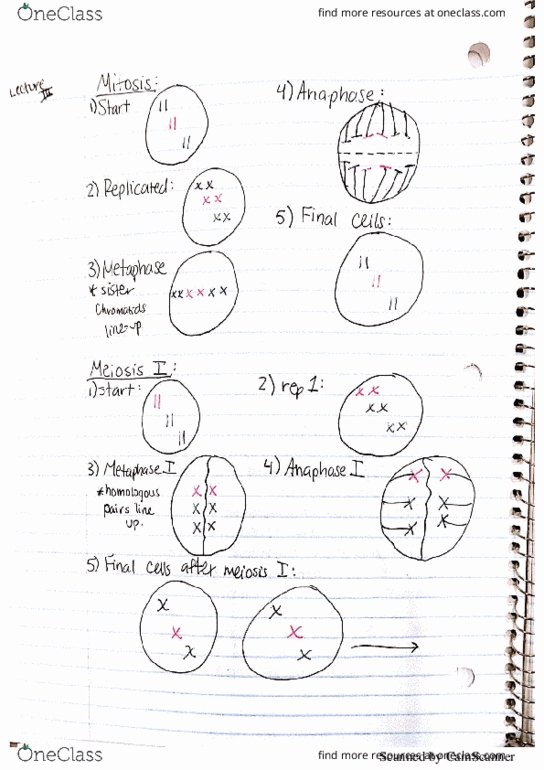 OneClass
find more resources at oneclass.com
Lecture
III
Mitosis:
1) Start
2) Replicated:
3) Metaphase
* sister
chromatids
line-up
4) Anaphase:
5) Final cells:
Meiosis I:
1) start:
2) rep 1:
3) Metaphase I
* homologous
pairs line
up.
4) Anaphase I
5) Final cells after meiosis I:
OneClass
find more resources at oneclass.com
Scanned by CamScanner